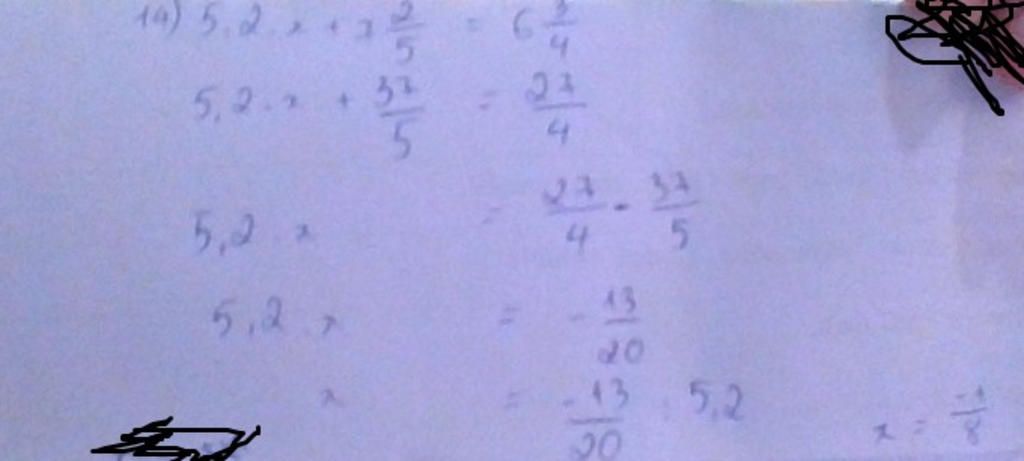 14) 5,2 . x + 7 2/5 = 6 3/4
5,2 . x + 37/5 = 27/4
5,2 x = 27/4 - 37/5
5,2 x = - 13/20
x = -13/20 : 5,2
x = -1/8